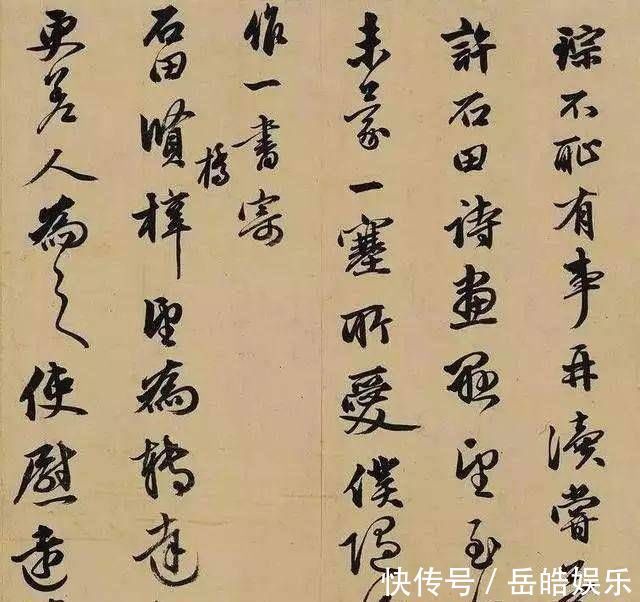 琮不恥有事再瀆嘗
許石田詩畫懸望至
未蒙一塞所愛僕
作一書寄
石田賢橋梓望為轉達
更差人為之使慰
快传号 / 岳皓娱乐